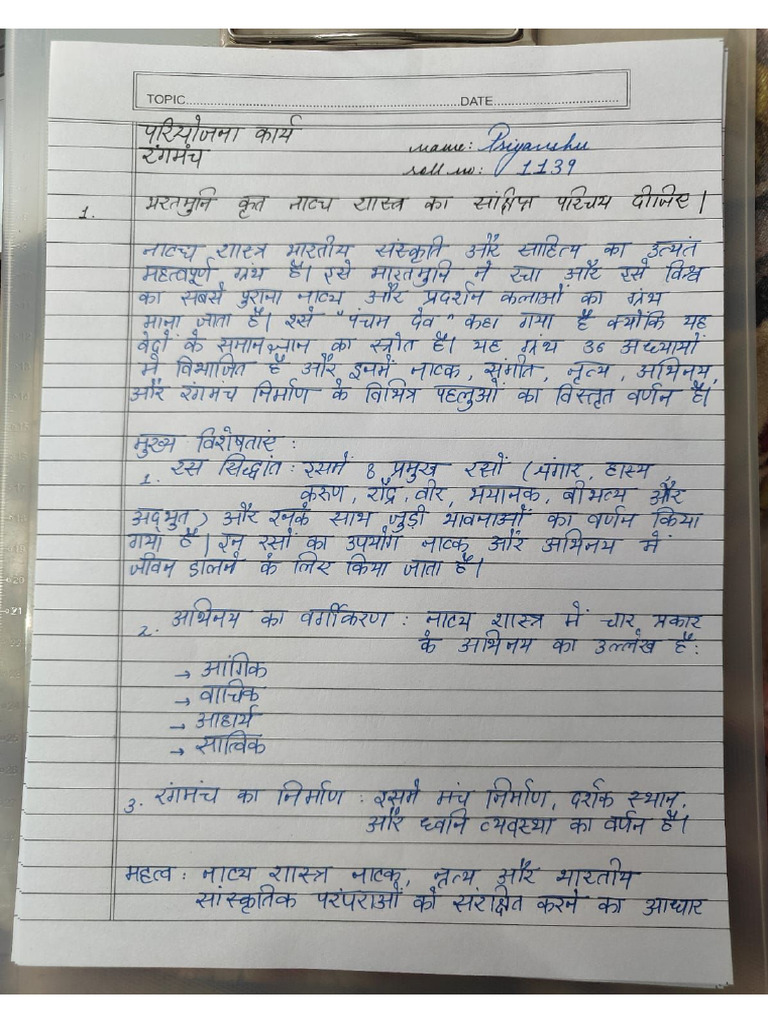 TOPIC..............................DATE..............................
परियोजना कार्य
name: Priyanshu
रंगमंच
roll no: 1139
1. भरतमुनि कृत नाट्य शास्त्र का संक्षिप्त परिचय दीजिए।
नाट्य शास्त्र भारतीय संस्कृति और साहित्य का अत्यंत
महत्वपूर्ण ग्रंथ है। इसे भारतमुनि ने रचा और इसे विश्व
का सबसे पुराना नाट्य और प्रदर्शन कलाओं का ग्रंथ
माना जाता है। इसे "पंचम देव" कहा गया है क्योंकि यह
वेदों के समान ज्ञान का स्त्रोत है। यह ग्रंथ 36 अध्यायों
में विभाजित है और इनमें नाटक, संगीत, नृत्य, अभिनय,
और रंगमंच निर्माण के विभिन्न पहलुओं का विस्तृत वर्णन है।
मुख्य विशेषताएं :
1. रस सिद्धांत : इसमें 8 प्रमुख रसों (श्रृंगार, हास्य,
करुण, रौद्र, वीर, भयानक, बीभत्स और
अद्भुत) और इनके साथ जुड़ी भावनाओं का वर्णन किया
गया है। इन रसों का उपयोग नाटक और अभिनय में
जीवन डालने के लिए किया जाता है।
2. अभिनय का वर्गीकरण : नाट्य शास्त्र में चार प्रकार
के अभिनय का उल्लेख है :
→ आंगिक
→ वाचिक
→ आहार्य
→ सात्विक
3. रंगमंच का निर्माण : इसमें मंच निर्माण, दर्शक स्थान,
और ध्वनि व्यवस्था का वर्णन है।
महत्व : नाट्य शास्त्र नाटक, नृत्य और भारतीय
सांस्कृतिक परंपराओं को संरक्षित करने का आधार